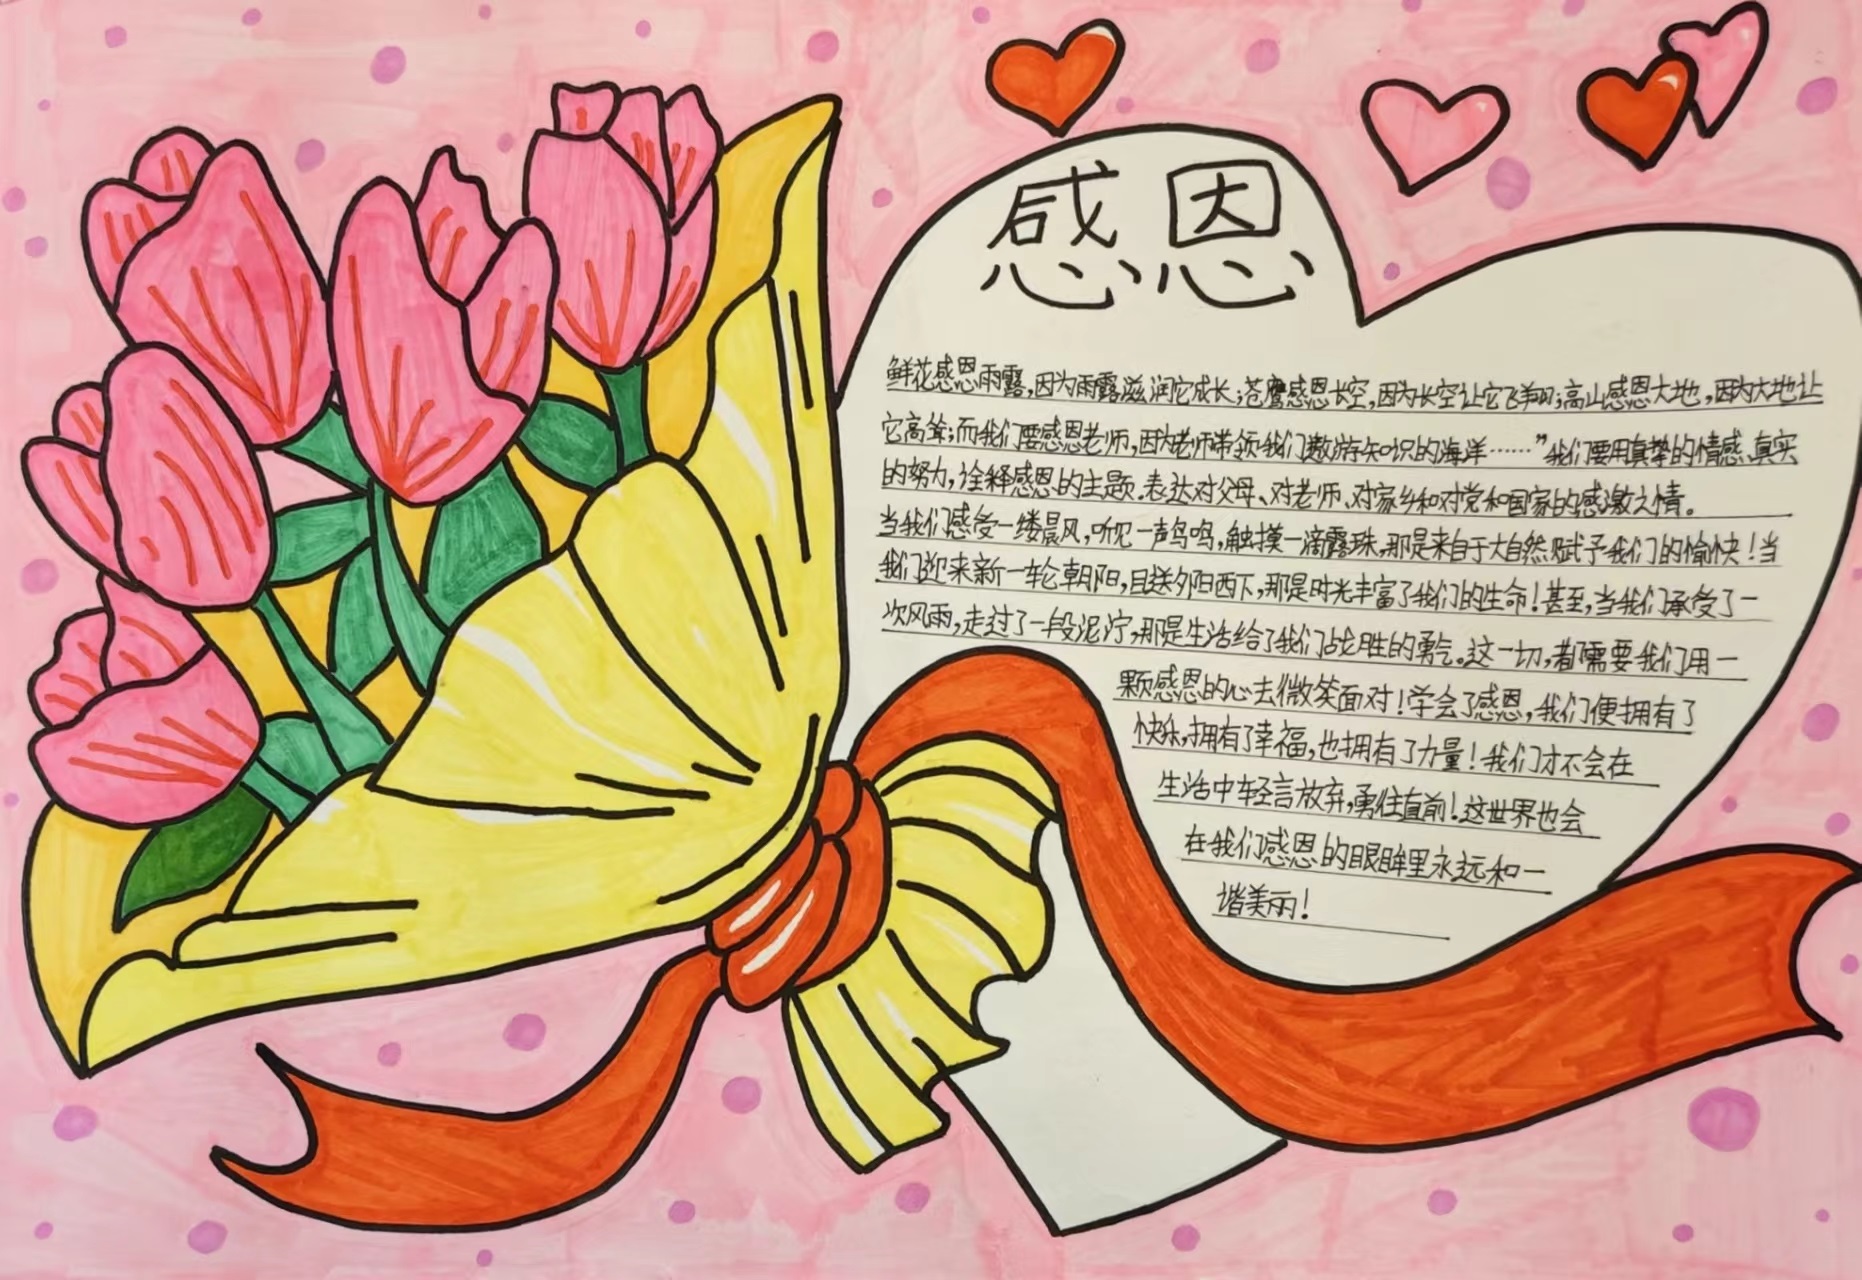 感恩
鲜花感恩雨露,因为雨露滋润它成长;苍鹰感恩长空,因为长空让它飞翔;高山感恩大地,因为大地让
它高耸;而我们要感恩老师,因为老师带领我们遨游知识的海洋……”我们要用真挚的情感、真实
的努力,诠释感恩的主题.表达对父母、对老师、对家乡和对党和国家的感激之情。
当我们感受一缕晨风,听见一声鸟鸣,触摸一滴露珠,那是来自于大自然赋予我们的愉快!当
我们迎来新一轮朝阳,目送夕阳西下,那是时光丰富了我们的生命!甚至,当我们承受了一
次风雨,走过了一段泥泞,那是生活给了我们战胜的勇气。这一切,都需要我们用一
颗感恩的心去微笑面对!学会了感恩,我们便拥有了
快乐,拥有了幸福,也拥有了力量!我们才不会在
生活中轻言放弃,勇往直前!这世界也会
在我们感恩的眼眸里永远和一
谐美丽!